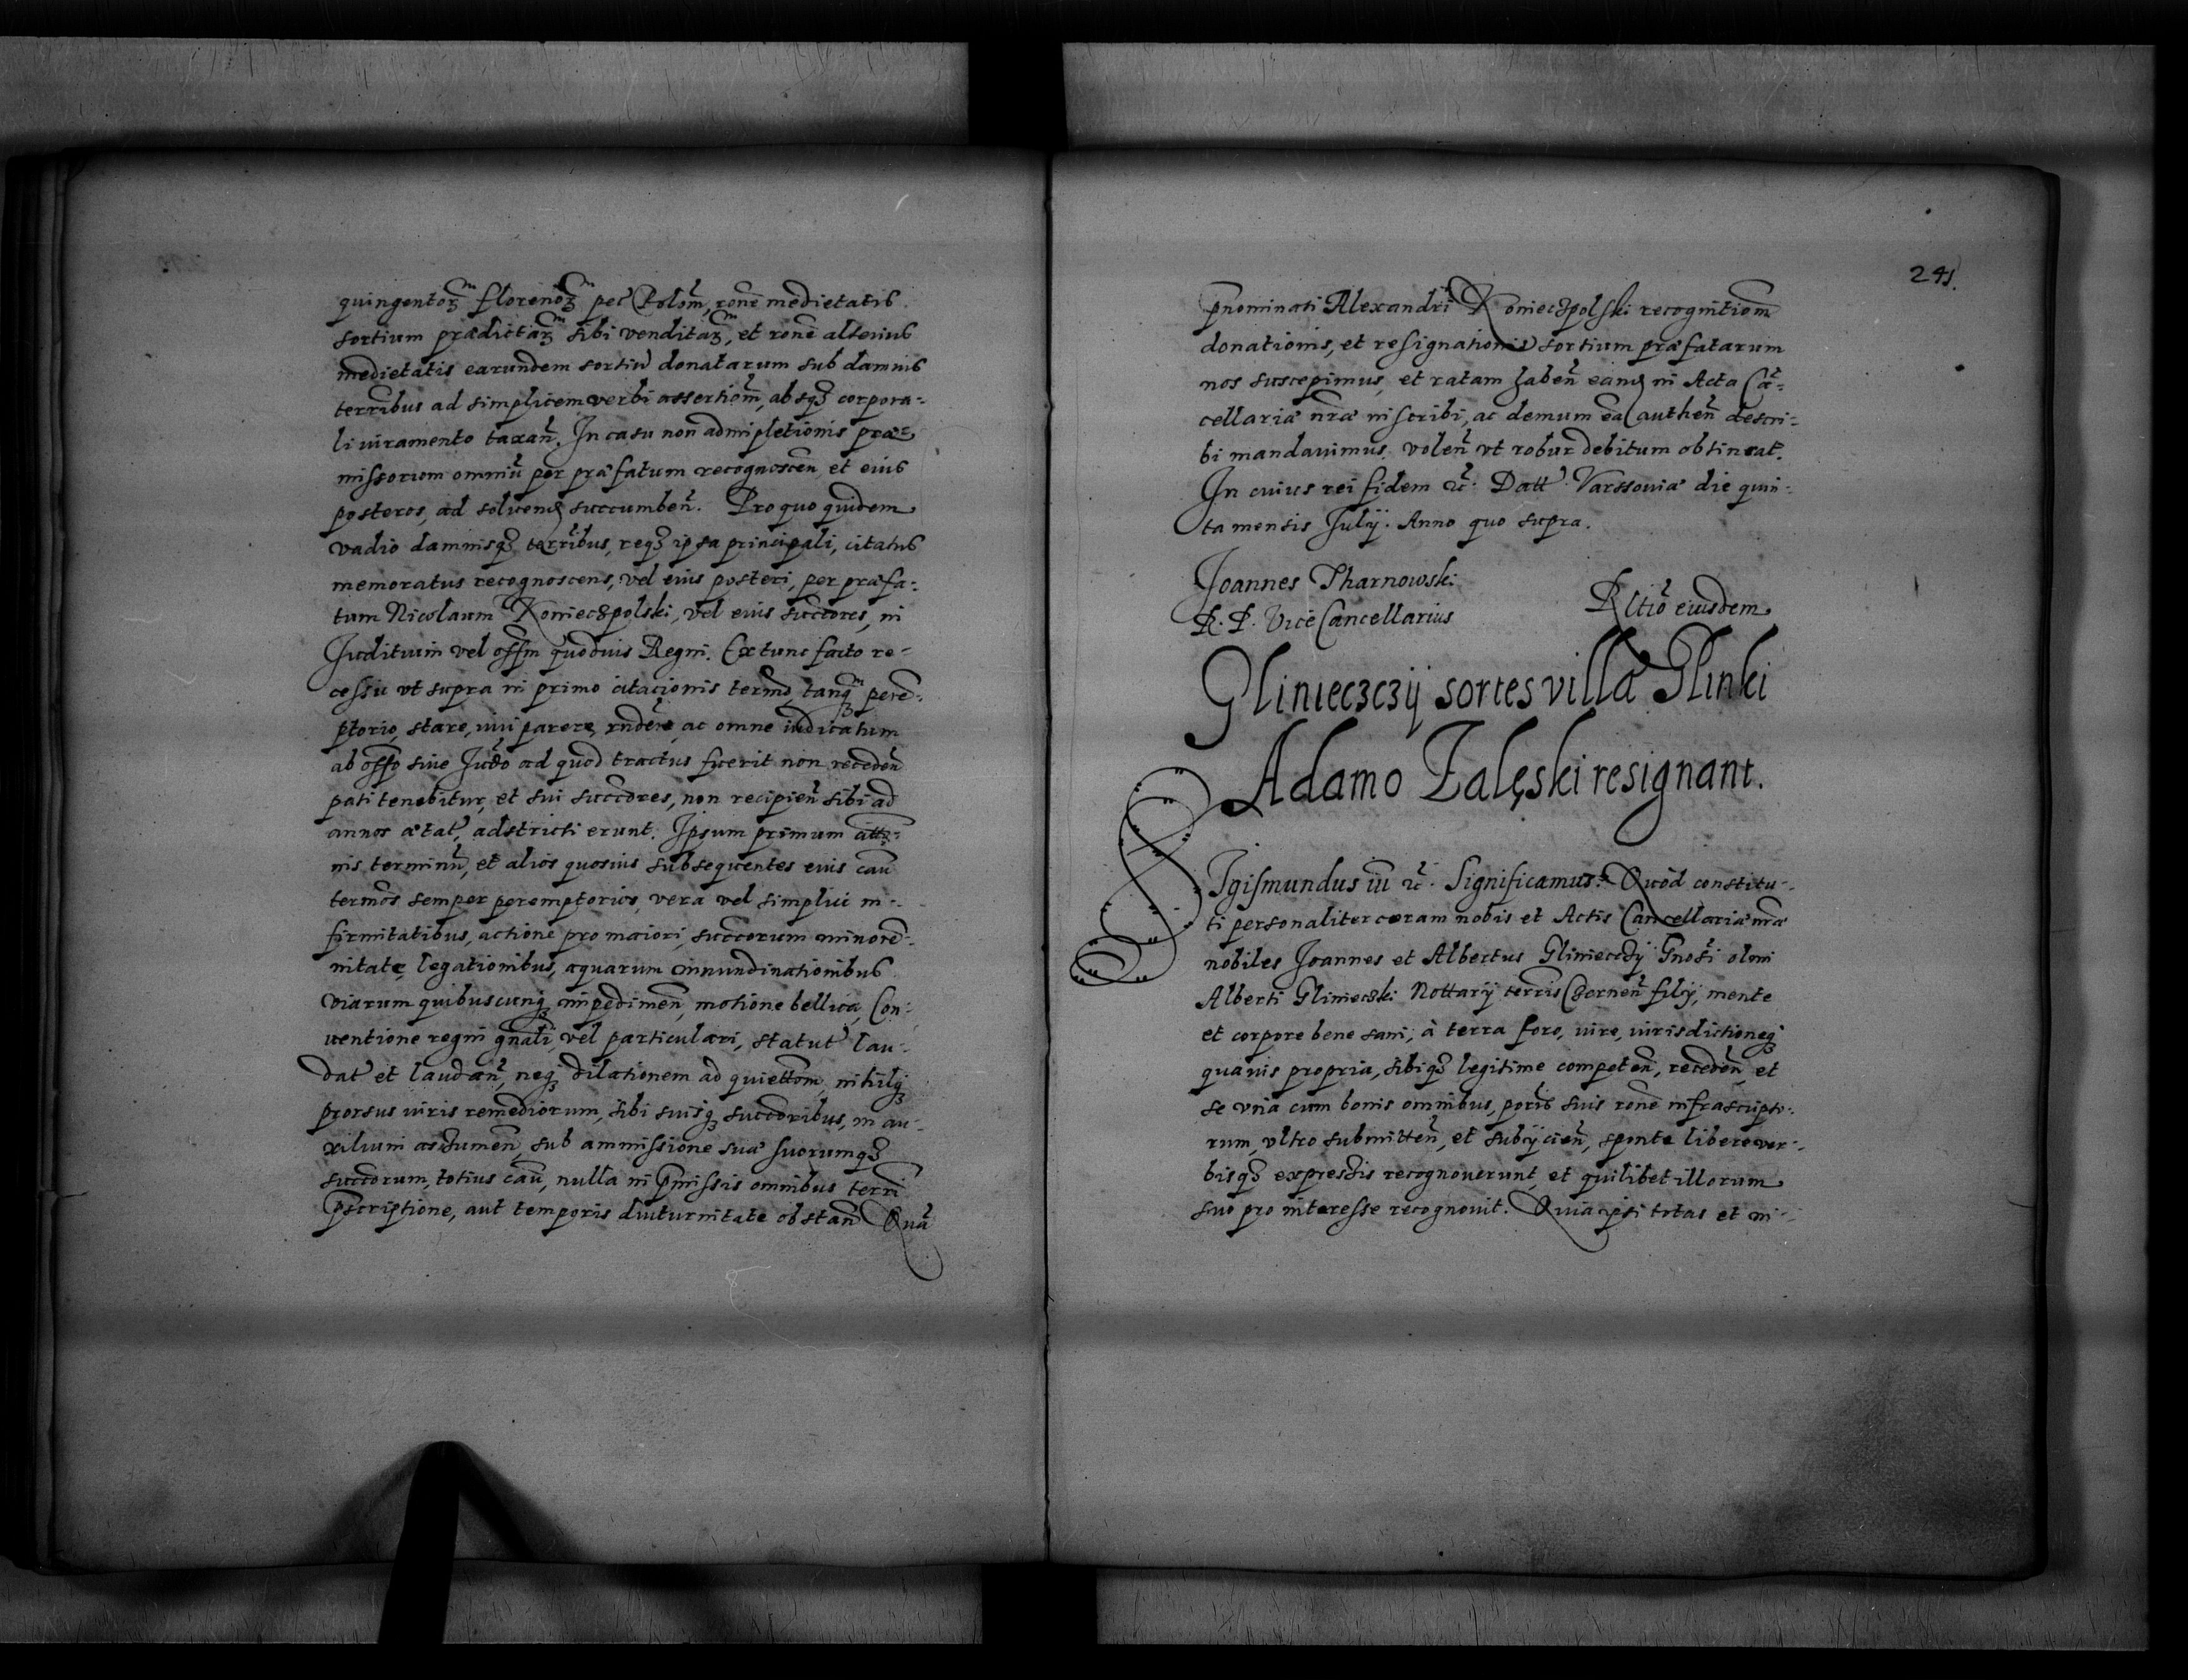 quingentorꝫ florenorꝫ pec Polon̄, rōne medietatis
sortium prædictarꝫ sibi venditarꝫ, et rōne alterius
medietatis earundem sortiū donatarum sub damnis
terribus ad simplicem verbi assertion̄, absqꝫ corpora-
li iuramento taxan̄. In casu non adimpletionis præ-
missorum omniū per præfatum recognoscen̄ et eius
posteros, ad solvend succumben̄. Pro quo quidem
vadio damnisqꝫ terribus, reqꝫ ipsa principali, citatus
memoratus recognoscens, vel eius posteri, per præfa-
tum Nicolaum Konieczpolski, vel eius succōres, in
Iuditium vel offm quoduis Regni. Ex tunc facto re-
cessu vt supra in primo citacionis termō, tanqꝫ perē-
ptorio, stare, iuri parere, rn̄dere, ac omne iudicatum
ab offō siue Iudō ad quod tractus fuerit non receden̄
pati tenebitur, et sui succōres, non recipien̄ sibi ad
annos ætat, adstricti erunt. Ipsum primum citt-
nis terminū, et alios quosuis subsequentes eius cau
termōs semper peremptorios, vera vel simplici in-
firmitatibus, actione pro maiori, succōrum minorē-
nitate, legationibus, aquarum innundinationibus
viarum quibuscunqꝫ impedimen̄, motione bellica, Con-
uentione regni gn̄ali, vel particulari, statut lau-
dat et laudan̄, neqꝫ dilationem ad quiettom, nihilqꝫ
prorsus iuris remediorum, sibi suisqꝫ succōribus, in au-
xilium assumen̄, sub ammissione suæ suorumqꝫ
succōrum, totius cau, nulla in p̄missis omnibus terri
p̄scriptione, aut temporis diuturnitate obstan̄ Quā
241.
p̄nominati Alexandri Konieczpolski recognitionem
donationis, et resignationis sortium præfatarum
nos suscepimus, et ratam haben̄ eand in Acta Cā-
cellariæ nr̄æ inscribi, ac demum ea authen̄ descri-
bi mandauimus, volen̄ vt robur debitum obtineat.
In cuius rei fidem ꝛc. Datt Varssouiæ die quin-
ta mensis Julij. Anno quo supra.
Joannes Tharnowski
R. P. Vice Cancellarius
Rltiō eiusdem
Glinieczczij sortes villæ Glinki
Adamo Zalęski resignant.
SIgismundus iii ꝛc. Significamus. Quod constitu-
ti personaliter coram nobis et Actis Cancellariæ nr̄æ
nobiles Joannes et Albertus Glinieczczij Gnosi olim
Alberti Glinieczki Nottarij terris Czernen̄ filij, mente
et corpore bene sani, à terra foro, iure, iurisdictioneqꝫ
quauis propria, sibiqꝫ legitime competen̄, receden̄, et
se vna cum bonis omnibus, poris suis rōne infrascripto-
rum, vltro submitten̄, et subijcien̄, sponte libere ver-
bisqꝫ expressis recognouerunt, et quilibet illorum
suo pro interesse recognouit. Quia ipsi totas et in-